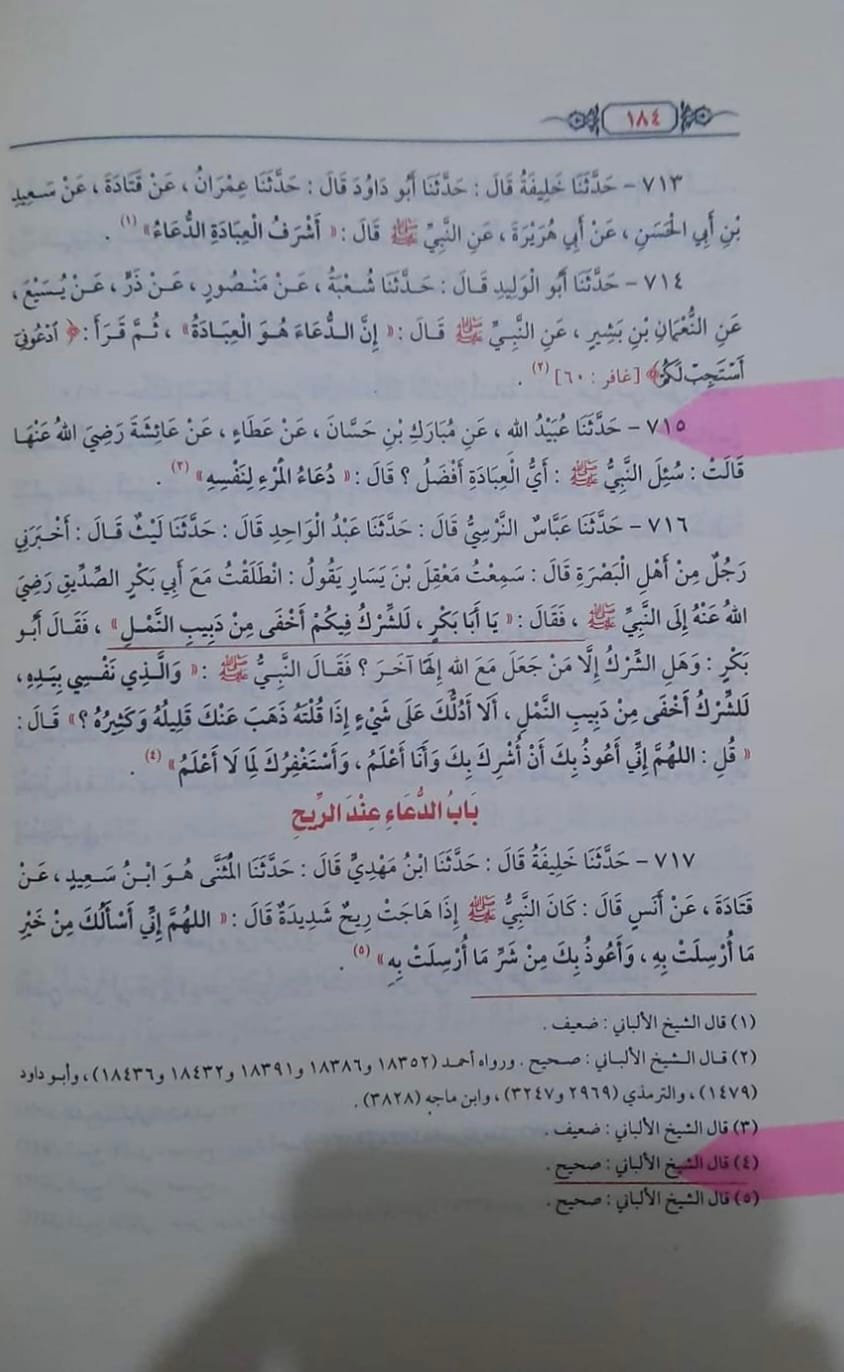 ١٨٤
٧١٣ – حَدَّثَنَا خَلِيفَةُ قَالَ : حَدَّثَنَا أَبُو دَاوُدَ قَالَ : حَدَّثَنَا عِمْرَانُ ، عَنْ قَتَادَةَ ، عَنْ سَعِيدِ
بْنِ أَبِي الْحَسَنِ ، عَنْ أَبِي هُرَيْرَةَ ، عَنِ النَّبِيِّ ﷺ قَالَ : « أَشْرَفُ الْعِبَادَةِ الدُّعَاءُ » (١) .
٧١٤ – حَدَّثَنَا أَبُو الْوَلِيدِ قَالَ : حَدَّثَنَا شُعْبَةُ ، عَنْ مَنْصُورٍ ، عَنْ ذَرٍّ ، عَنْ يُسَيْعَ ،
عَنِ النُّعْمَانِ بْنِ بَشِيرٍ ، عَنِ النَّبِيِّ ﷺ قَالَ : « إِنَّ الدُّعَاءَ هُوَ الْعِبَادَةُ » ، ثُمَّ قَرَأَ : ﴿ ادْعُونِي
أَسْتَجِبْ لَكُمْ ﴾ [غافر : ٦٠] (٢) .
٧١٥ – حَدَّثَنَا عُبَيْدُ الله ، عَنِ مُبَارَكِ بْنِ حَسَّانَ ، عَنْ عَطَاءٍ ، عَنْ عَائِشَةَ رَضِيَ اللهُ عَنْهَا
قَالَتْ : سُئِلَ النَّبِيُّ ﷺ : أَيُّ الْعِبَادَةِ أَفْضَلُ ؟ قَالَ : « دُعَاءُ الْمَرْءِ لِنَفْسِهِ » (٣) .
٧١٦ – حَدَّثَنَا عَبَّاسٌ النَّرْسِيُّ قَالَ : حَدَّثَنَا عَبْدُ الْوَاحِدِ قَالَ : حَدَّثَنَا لَيْثٌ قَالَ : أَخْبَرَنِي
رَجُلٌ مِنْ أَهْلِ الْبَصْرَةِ قَالَ : سَمِعْتُ مَعْقِلَ بْنَ يَسَارٍ يَقُولُ : انْطَلَقْتُ مَعَ أَبِي بَكْرٍ الصِّدِّيقِ رَضِيَ
اللهُ عَنْهُ إِلَى النَّبِيِّ ﷺ ، فَقَالَ : « يَا أَبَا بَكْرٍ ، لَلشِّرْكُ فِيكُمْ أَخْفَى مِنْ دَبِيبِ النَّمْلِ » ، فَقَالَ أَبُو
بَكْرٍ : وَهَلِ الشِّرْكُ إِلَّا مَنْ جَعَلَ مَعَ الله إِلَهًا آخَرَ ؟ فَقَالَ النَّبِيُّ ﷺ : « وَالَّذِي نَفْسِي بِيَدِهِ ،
لَلشِّرْكُ أَخْفَى مِنْ دَبِيبِ النَّمْلِ ، أَلَا أَدُلُّكَ عَلَى شَيْءٍ إِذَا قُلْتَهُ ذَهَبَ عَنْكَ قَلِيلُهُ وَكَثِيرُهُ ؟ » قَالَ :
« قُلِ : اللهُمَّ إِنِّي أَعُوذُ بِكَ أَنْ أُشْرِكَ بِكَ وَأَنَا أَعْلَمُ ، وَأَسْتَغْفِرُكَ لِمَا لَا أَعْلَمُ » (٤) .
بَابُ الدُّعَاءِ عِنْدَ الرِّيحِ
٧١٧ – حَدَّثَنَا خَلِيفَةُ قَالَ : حَدَّثَنَا ابْنُ مَهْدِيٍّ قَالَ : حَدَّثَنَا الْمُثَنَّى هُوَ ابْنُ سَعِيدٍ ، عَنْ
قَتَادَةَ ، عَنْ أَنَسٍ قَالَ : كَانَ النَّبِيُّ ﷺ إِذَا هَاجَتْ رِيحٌ شَدِيدَةٌ قَالَ : « اللهُمَّ إِنِّي أَسْأَلُكَ مِنْ خَيْرِ
مَا أُرْسِلَتْ بِهِ ، وَأَعُوذُ بِكَ مِنْ شَرِّ مَا أُرْسِلَتْ بِهِ » (٥) .
(١) قال الشيخ الألباني : ضعيف .
(٢) قال الشيخ الألباني : صحيح . ورواه أحمد (١٨٣٥٢ و١٨٣٨٦ و١٨٣٩١ و١٨٤٣٢ و١٨٤٣٦) ، وأبو داود
(١٤٧٩) ، والترمذي (٢٩٦٩ و٣٢٤٧) ، وابن ماجه (٣٨٢٨) .
(٣) قال الشيخ الألباني : ضعيف .
(٤) قال الشيخ الألباني : صحيح .
(٥) قال الشيخ الألباني : صحيح .